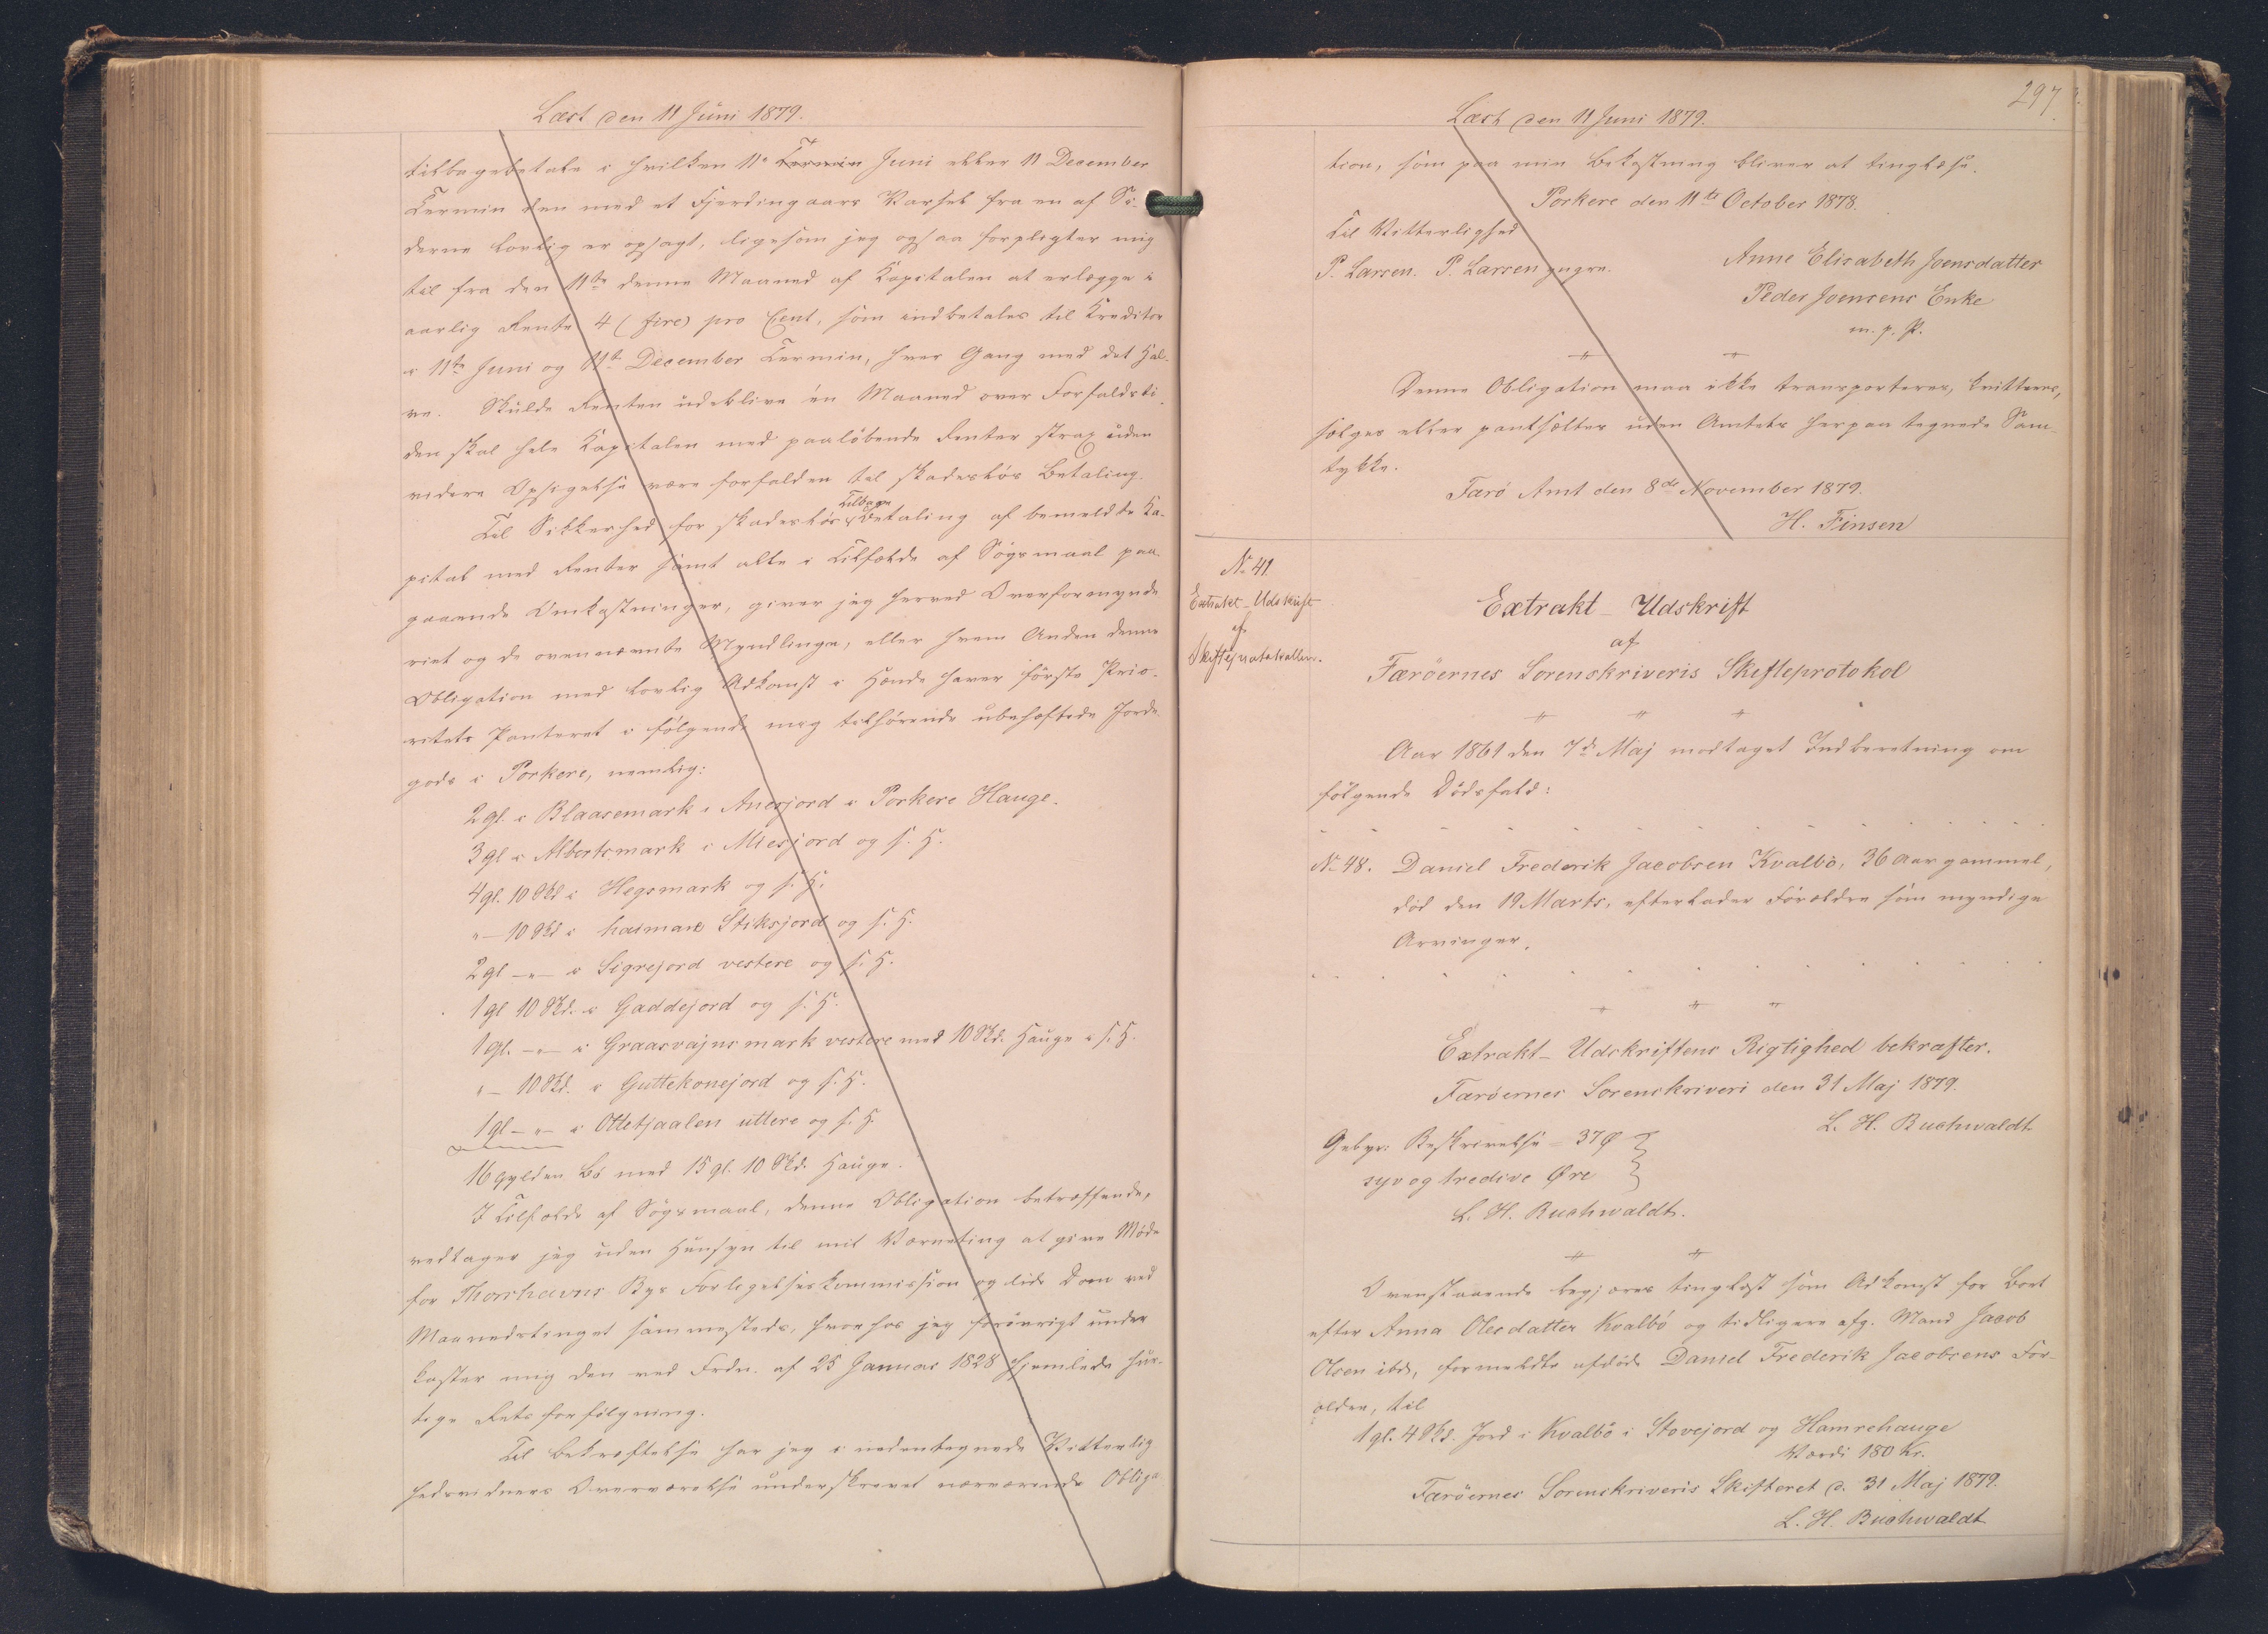 Læst den 11 Juni 1879.
tilbagebetale i hvilken 11e Termin Juni eller 11 December
Termin den med et Fjerdingaars Varsel fra en af Si-
derne lovlig er opsagt, ligesom jeg ogsaa forpligter mig
til fra den 11te denne Maaned af Kapitalen at erlægge i
aarlig Rente 4 (fire) pro Cent, som indbetales til Kreditor
i 11te Juni og 11te December Termin, hver Gang med det Hal-
ve. Skulde Renten udeblive én Maaned over Forfaldsti-
den skal hele Kapitalen med paaløbende Renter strax uden
videre Opsigelse være forfalden til skadesløs Betaling.
Til Sikkerhed for skadesløs Tilbage Betaling af bemeldte Ka-
pital med Renter samt alle i Tilfælde af Søgsmaal paa
gaaende Omkostninger, giver jeg herved Overformynde
riet og de ovennævnte Myndlinge, eller hvem Anden denne
Obligation med lovlig Adkomst i Hænde haver første Prio-
ritets Panteret i følgende mig tilhørende ubehæftede Jorde
gods i Porkere, nemlig:
2 gl. i Blaasemark i Anesjord i Porkere Hauge.
3 gl i Albertsmark i Miesjord og s. H.
4 gl. 10 Skd i Hegsmark og s. H.
" — 10 Skd i haimane Stiksjord og s. H.
2 gl — " — i Sigrejord vestere og s. H.
1 gl 10 Skd. i Gaddejord og s. H.
1 gl. — " — i Graasvajnsmark vestere med 10 Skd. Hauge i s. H.
" — 10 Skd. i Guttekonejord og s. H.
1 gl — " — i Ottetjaalen uttere og s. H.
16 Gylden Bø med 15 gl. 10 Skd. Hauge.
I Tilfælde af Søgsmaal, denne Obligation betræffende,
vedtager jeg uden Hensyn til mit Værneting at give Møde
for Thorshavns Bys Forligelseskommission og lide Dom ved
Maanedstinget sammesteds, hvorhos jeg forøvrigt under
kaster mig den ved Frdn. af 25 Januar 1828 hjemlede hur-
tige Retsforfølgning.
Til Bekræftelse har jeg i nedentegnede Vitterlig
hedsvidners Overværelse underskrevet nærværende Obliga
297
Læst den 11 Juni 1879.
tion, som paa min Bekostning bliver at tinglæse.
Porkere den 11te October 1878.
Til Vitterlighed
P. Larsen. P. Larsen yngre.
Anne Elisabeth Joensdatter
Peder Joensens Enke
m. p. P.
Denne Obligation maa ikke transporteres, kvitteres,
sælges eller pantsættes uden Amtets herpaa tegnede Sam-
tykke.
Færø Amt den 8de November 1879.
H. Finsen
No 41.
Extrakt-Udskrift
af
Skifteprotokollen.
Extrakt-Udskrift
af
Færöernes Sorenskriveris Skifteprotokol
Aar 1861 den 7de Maj modtaget Indberetning om
følgende Dødsfald:
No 48. Daniel Frederik Jacobsen Kvalbö, 36 Aar gammel,
død den 19 Marts, efterlader Forældre som myndige
Arvinger.
Extrakt-Udskriftens Rigtighed bekræfter.
Færöernes Sorenskriveri den 31 Maj 1879.
L. H. Buchwaldt
Gebyr: Beskrivelse = 37 Ø
syv og tredive Øre
L. H. Buchwaldt.
Ovenstaaende begjæres tinglæst som Adkomst for Boet
efter Anna Olesdatter Kvalbö og tidligere afg. Mand Jacob
Olsen ibd, formeldte afdøde Daniel Frederik Jacobsens For-
ældre, til
1 gl. 4 Skd. Jord i Kvalbö i Stovejord og Hamrehauge
Værdi 180 Kr.
Færöernes Sorenskriveris Skifteret d. 31 Maj 1879.
L. H. Buchwaldt